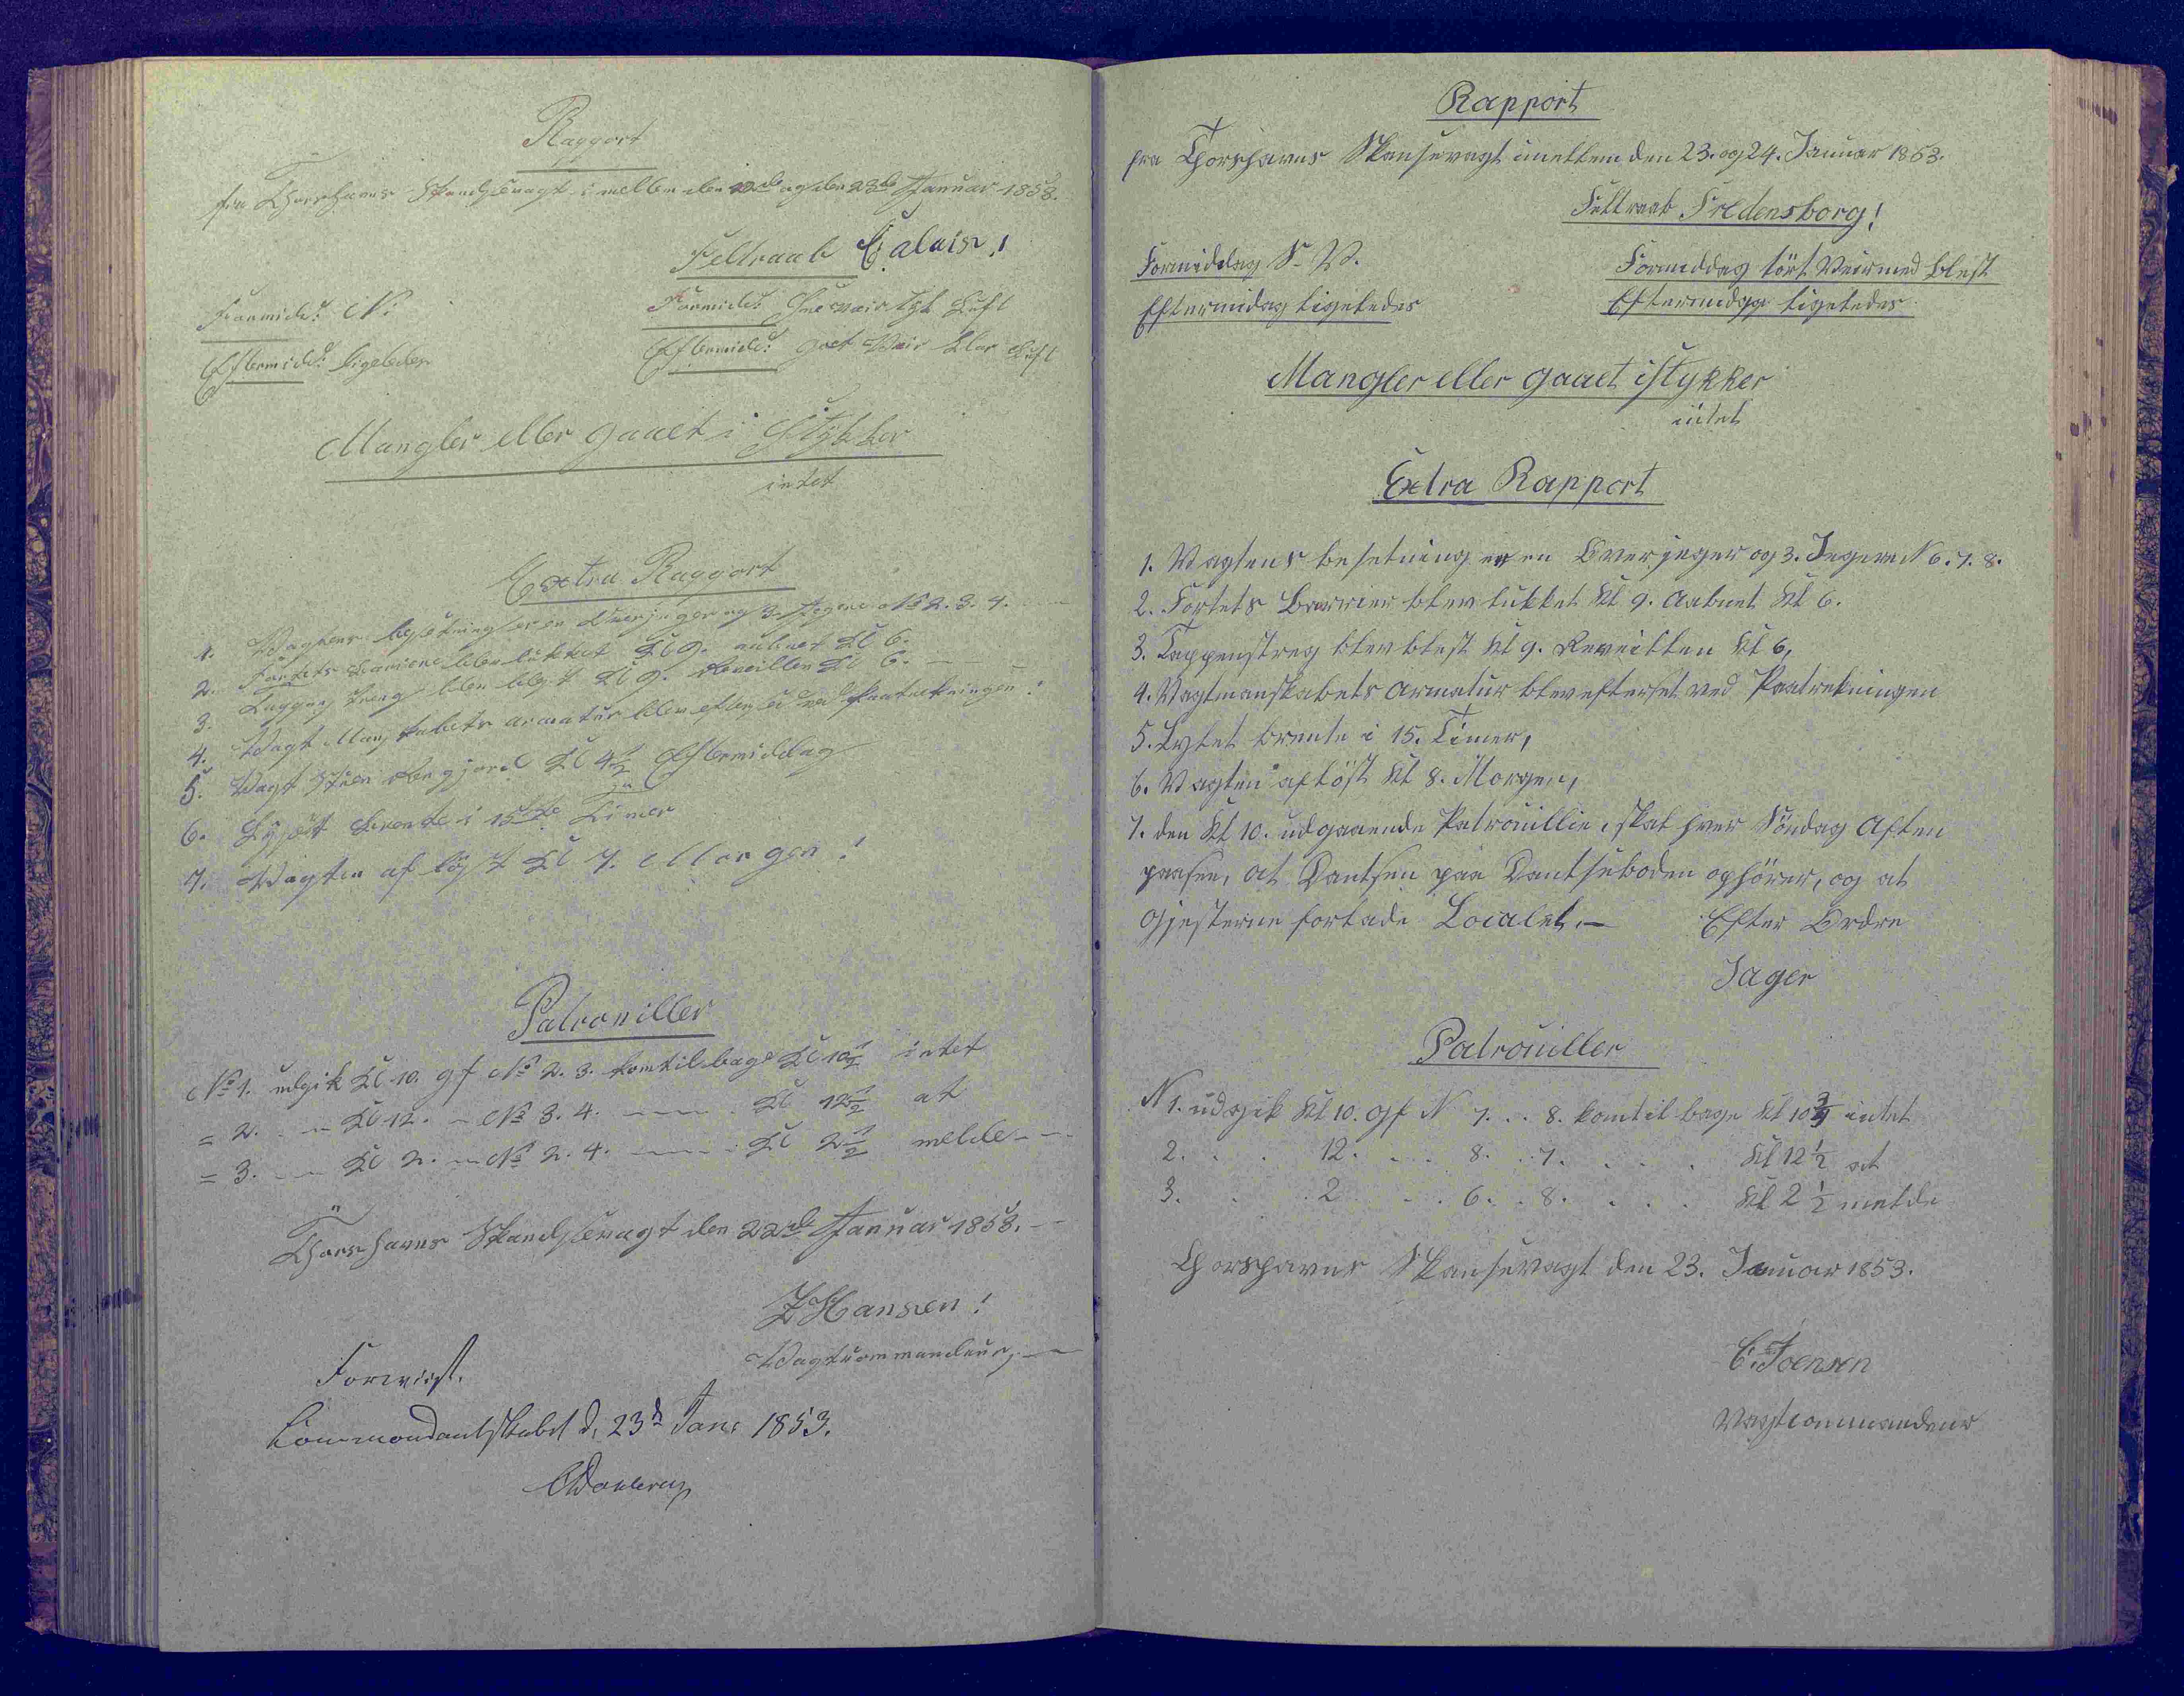 Rapport
fra Thorshavns Skandsevagt imellem den 22de og den 23de Januar 1853.
Feltraab Calais!
Formidd: N: Formidd: Sneveir tyk Luft
Eftermidd: ligeledes Eftermidd: godt Veir klar Luft
Mangler eller gaaet i Stykker
intet
Extra Rapport
1. Vagtens besetning er en Overjeger og 3. Jegere No 2. 3. 4.
2. Fortets Barriere blev lukket Kl 9. aabnet Kl 6.
3. Tappenstreg blev blest Kl 9. Reveillen Kl 6.
4. Vagt Mandskabets armatur blev efterset ved Paatrekningen!
5. Vagt Stuen Rengjord Kl 4½ Eftermiddag
6. Lyset brente i 15 Timer
7. Vagten afløst Kl 7. Morgen!
Patrouiller
No 1. udgik Kl 10. gf No 2. 3. kom tilbage Kl 10½ intet
= 2. - - Kl 12. - No 3. 4. - - - Kl 12½ at
= 3. - - Kl 2. - No 2. 4. - - - Kl 2½ melde - -
Thorshavns Skandsevagt den 22de Januar 1853. - -
Z Hansen!
Vagtcommandeur, -
Foreviist.
Commandantskabet d. 23d Jan: 1853.
Rapport
fra Thorshavns Skansevagt imellem den 23. og 24. Januar 1853.
Feltraab Fredensborg!
Formiddag S-V. Formiddag tört Veir med blest
Eftermidag ligeledes Eftermidga ligeledes
Mangler eller gaaet istykker
intet
Extra Rapport
1. Vagtens besetning er en Overjeger og 3. Jegere N 6. 7. 8.
2. Fortets Barrier blev lukket Kl 9. Aabnet Kl 6.
3. Tappenstreg blev blest Kl 9. Reveillen Kl 6,
4. Vagtmanskabets armatur blev efterset ved Paatrekningen
5. Lyset brente i 15. Timer,
6. Vagten aflöst Kl 8. Morgen,
7. den Kl 10. udgaaende Patrouillie, skal hver Söndag Aften
paasee, at Dantsen paa Dantseboden ophörer, og at
Gjesterne forlade Localet. — Efter Ordre
Jager
Patrouiller
N 1. udgik Kl 10. gf N 7. . . 8. kom til bage Kl 10¾ intet
2. . . 12. . . . 8. . 7. . . . Kl 12½ at
3. . . 2 . . . 6. . 8. . . . Kl 2½ melde
Thorshavns Skansevagt den 23. Januar 1853.
C. Joensen
Vagtcommandeur